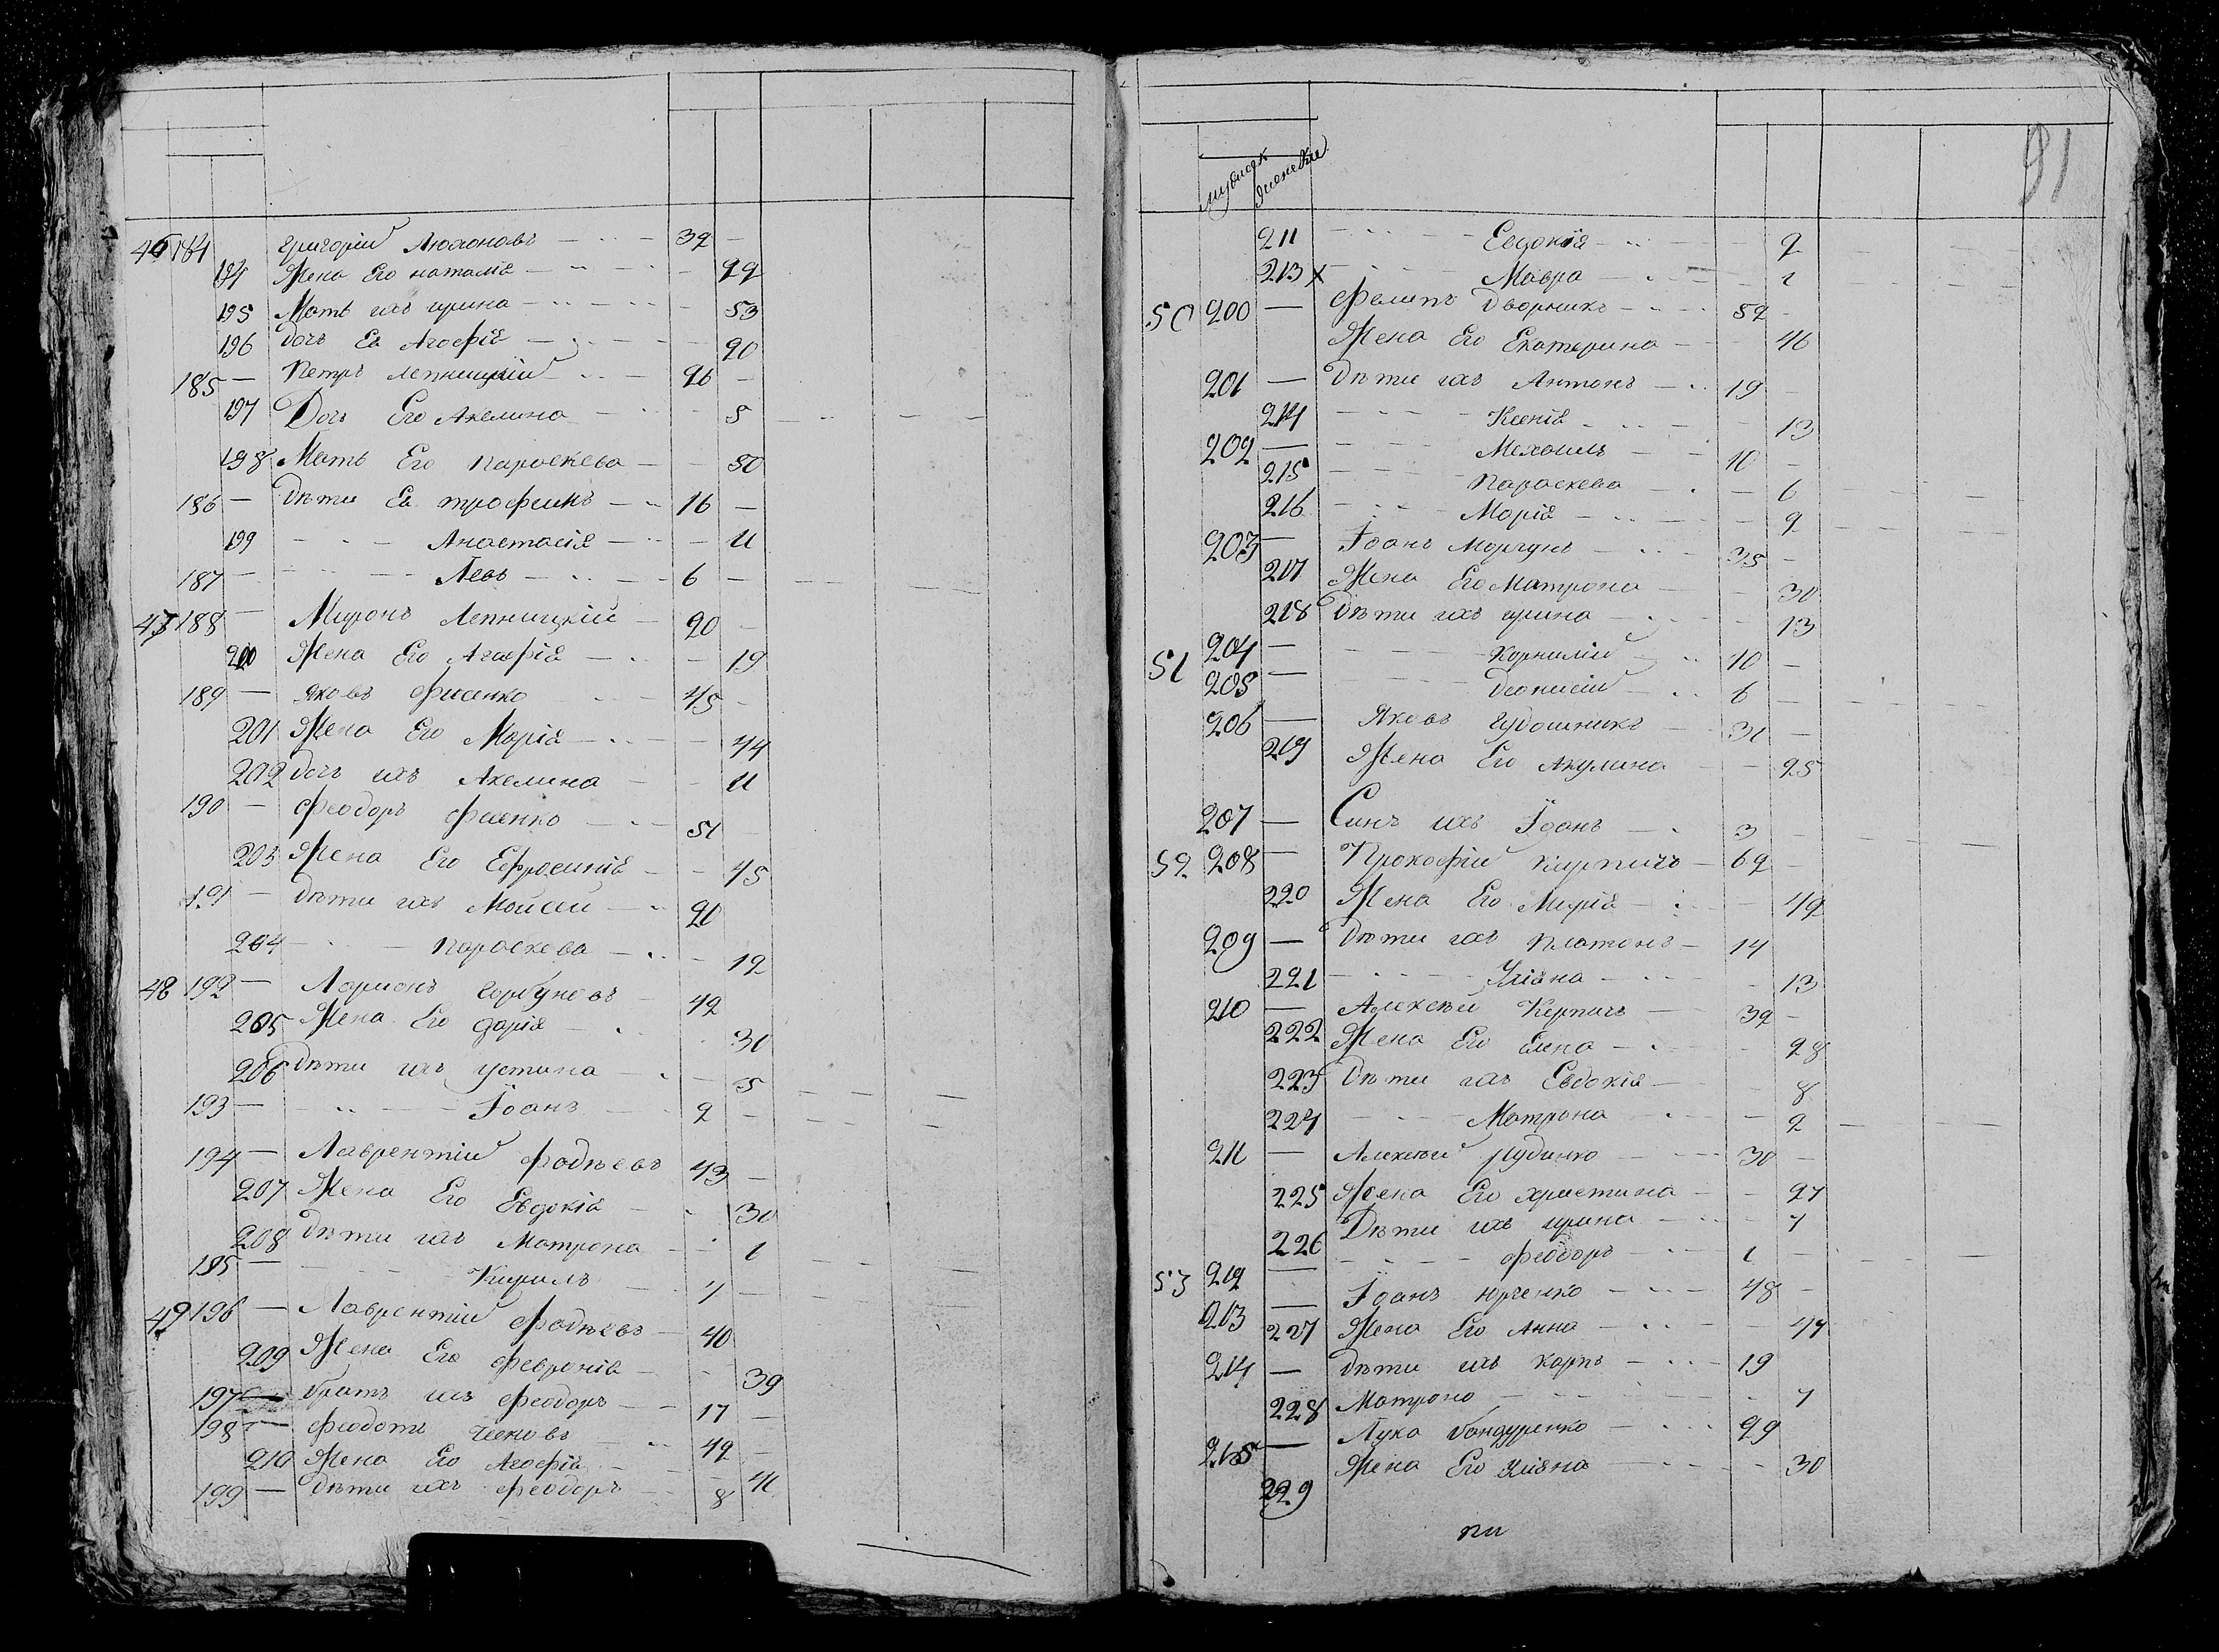 46 184 Григорій — 32 —
194 Жена Его наталія — 22
195 Мать ихъ ирина — 53
196 дочь Ея Агафія — 20
185 — Петръ Лепницкій — 26 —
197 Дочь Его Акелина — 5
198 Мать Его параскева — 50
186 — Дѣти Ея трофимъ — 16 —
199 — Анастасія — 11
187 — Левъ — 6 —
47 188 — Миронъ Лепницкій — 20 —
200 Жена Его Агафія — 19
189 — яковъ Фисенко 45 —
201 Жена Его Марія — 44
202 дочь ихъ Акелина — 11
190 — Феодоръ Фисенко — 51
203 Жена Его Ефросинія — 45
191 — Дѣти ихъ Моисей — 20
204 — параскева — 12
48 192 — Ларионъ Горбуновъ 42
205 Жена Его дарія — 30
206 Дѣти ихъ устина — 5
193 — Іоанъ 2 —
194 — Лаврентій Фадѣевъ 43 —
207 Жена Его Евдокія — 30
208 Дѣти ихъ Матрона — 1
195 — Кирилъ — 7 —
49 196 — Лаврентій Фадѣевъ — 40
209 Жена Его февронія — 39
197 — братъ ихъ феодоръ — 17 —
198 — феодотъ 42 —
210 Жена Его Агафія — 41
199 — Дѣти ихъ феодоръ — 8
91
мужеск женски
211 — Евдокія — 2
213 х — Мавра — 1
50 200 — Фелипъ Дворникъ — 52 —
Жена Его Екатерина — 46
201 — Дѣти ихъ Антонъ — 19 —
214 — Ксенія — 13
202 — Мехаилъ — 10 —
215 — Параскева — 6
216 — Марія — 2
203 — Іоанъ Моргунъ — 35 —
217 Жена Его Матрона — 30
218 Дѣти ихъ ирина — 13
51 204 — Корнилій — 10 —
205 — Деонисій — 6 —
206 — Яковъ 31 —
219 Жена Его Акулина — 25
207 — Синъ ихъ Іоанъ — 3 —
52 208 — Прокофій Кирпичъ — 62 —
220 Жена Его Марія — 42
209 — Дѣти ихъ Платонъ — 14
221 — Уліяна — 13
210 — Алексѣй Керпичъ — 32 —
222 Жена Его Елена — 28
223 Дѣти ихъ Евдокія — 8
224 — Матрона — 2
211 — Алексѣй Рудинко — 30 —
225 Жена Его христина — 27
226 Дѣти ихъ ирина — 7
53 212 — феодоръ — 1 —
213 — Іоанъ Юрченко — 48 —
227 Жена Его Анна — 47
214 — Дѣти ихъ Карпъ — 19
228 Матрона — 7
215 — Лука Бондуренко — 29
229 Жена Его Уліяна — 30